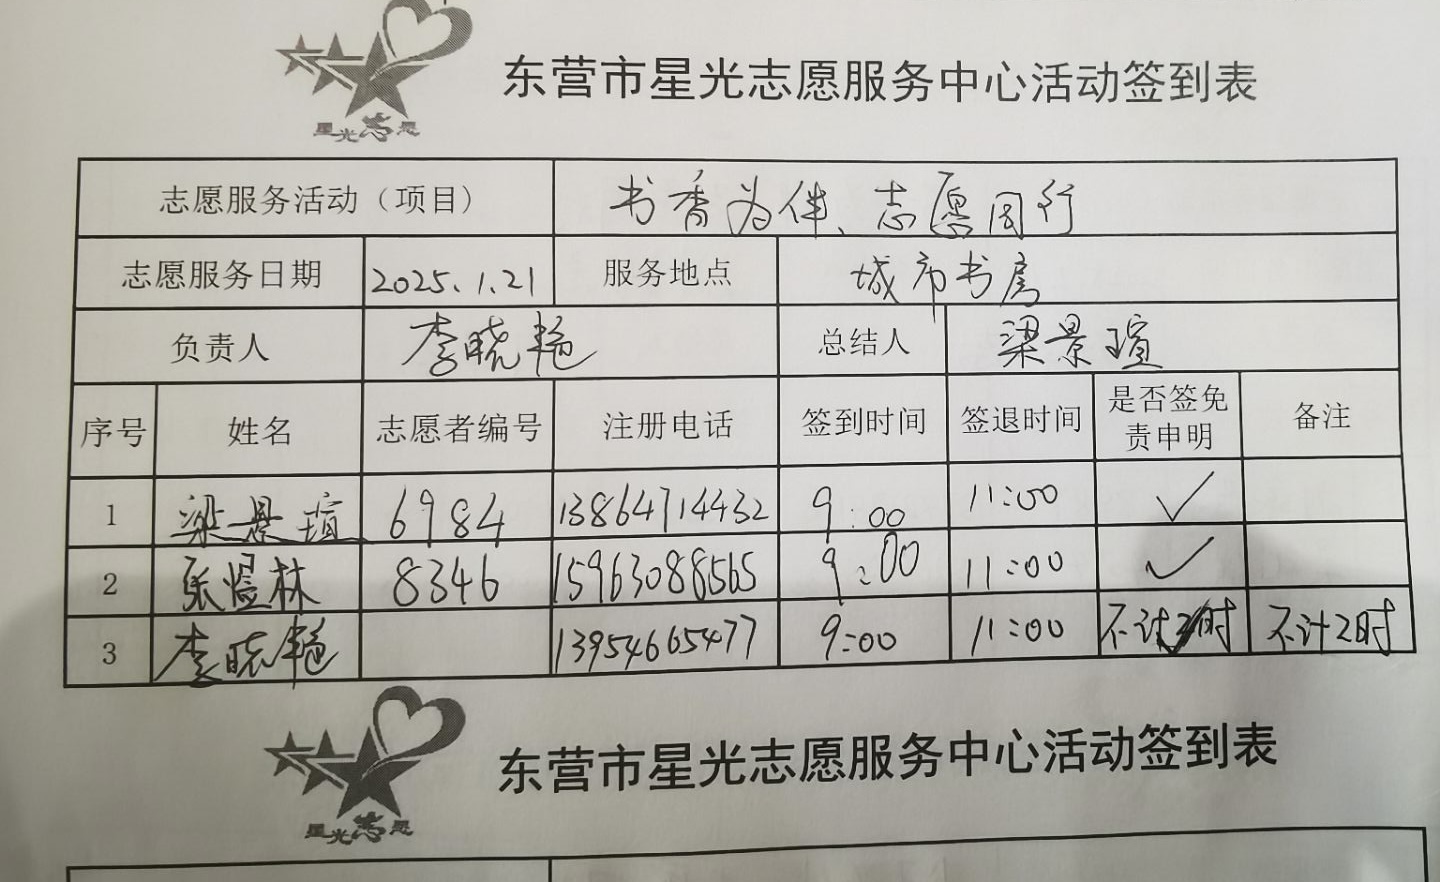 星光志愿
东营市星光志愿服务中心活动签到表
志愿服务活动（项目） 书香为伴、志愿同行
志愿服务日期 2025.1.21 服务地点 城市书房
负责人 李晓艳 总结人 梁景瑄
序号 姓名 志愿者编号 注册电话 签到时间 签退时间 是否签免责申明 备注
1 梁景瑄 6984 13864714432 9:00 11:00 ✓
2 张煜林 8346 15963088565 9:00 11:00 ✓
3 李晓艳 13954665477 9:00 11:00 不计2时 不计2时
东营市星光志愿服务中心活动签到表
星光志愿